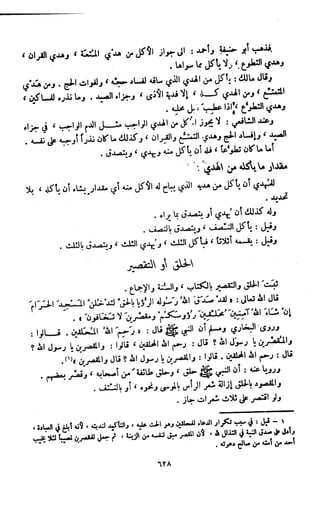 فذهب أبو حنيفة وأحمد : الى جواز الأكل من هدي المتعة ، وهدي القران ،
وهدي التطوع ، ولا يأكل مما سواها .
وقال مالك : يأكل من الهدي الذي ساقه لفساد حجه ، ولفوات الحج . ومن هدي
المتمتع ، ومن الهدي كله ، إلا فدية الأذى ، وجزاء الصيد . وما نذره للمساكين ،
وهدي التطوع ، إذا عطب قبل محله .
وعند الشافعي : لا يجوز الأكل من الهدي الواجب مثل الدم الواجب ، في جزاء
الصيد ، وإفساد الحج وهدي التمتع والقران ، وكذلك ما كان نذرا أوجبه على نفسه .
أما ما كان تطوعا ، فله أن يأكل منه ويهدي ، ويتصدق .
مقدار ما يأكله من الهدي :
للمهدي أن يأكل من هديه الذي يباح له الأكل منه أي مقدار يشاء أن يأكله ، بلا
تحديد .
وله كذلك أن يهدي أو يتصدق بما يراه .
وقيل : يأكل النصف ، ويتصدق بالنصف .
وقيل : يقسمه أثلاثا ، فيأكل الثلث ، ويهدي الثلث ، ويتصدق بالثلث .
الحلق أو التقصير
ثبت الحلق والتقصير بالكتاب ، والسنة والإجماع .
قال الله تعالى : « لقد صدق الله رسوله الرؤيا بالحق لتدخلن المسجد الحرام
إن شاء الله آمنين محلقين رؤوسكم ومقصرين لا تخافون » .
وروى البخاري ومسلم أن النبي ﷺ قال : « رحم الله المحلقين . قالوا :
والمقصرين يا رسول الله ؟ قال : رحم الله المحلقين ، قالوا : والمقصرين يا رسول الله ؟
قال : رحم الله المحلقين . قالوا : والمقصرين يا رسول الله ؟ قال والمقصرين »(١) .
ورويا عنه : أن النبي ﷺ حلق ، وحلق طائفة من أصحابه ، وقصر بعضهم .
والمقصود بالحلق إزالة شعر الرأس بالموسى ونحوه ، أو بالنتف .
ولو اقتصر على ثلاث شعرات جاز .
١ - قيل : في سبب تكرار الدعاء للمحلقين وهو الحث عليه ، والتأكيد لندبته ، لأنه أبلغ في العبادة ،
وأدل على صدق النية في التذلل لله ، لأن المقصر مبق لنفسه من الزينة ، ثم جعل للمقصرين نصيبا لئلا يخيب
أحد من أمته من صالح دعوته .
٦٣٨